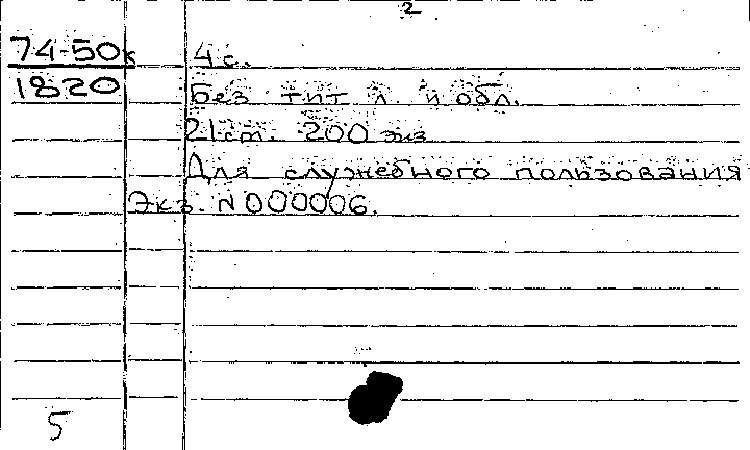 2
74-50к 4 с.
1820 Без тит. л. и обл.
21 ст. 200 экз
Для служебного пользования
Экз. N 000006.
5